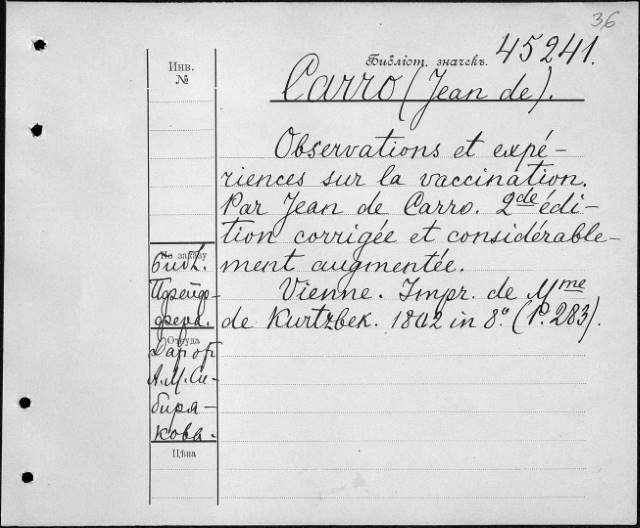 36
Библіот. значекъ. 45241.
Инв.
№
Carro (Jean de).
Observations et expé-
riences sur la vaccination.
Par Jean de Carro. 2de édi-
tion corrigée et considérable-
ment augmentée.
Vienne. Impr. de Mme
de Kurtzbek. 1802 in 8.° (P. 283).
По заказу
Библ.
Пфейф-
фера.
Откуда
Даръ отъ
А. М. Си-
биря-
кова.
Цѣна